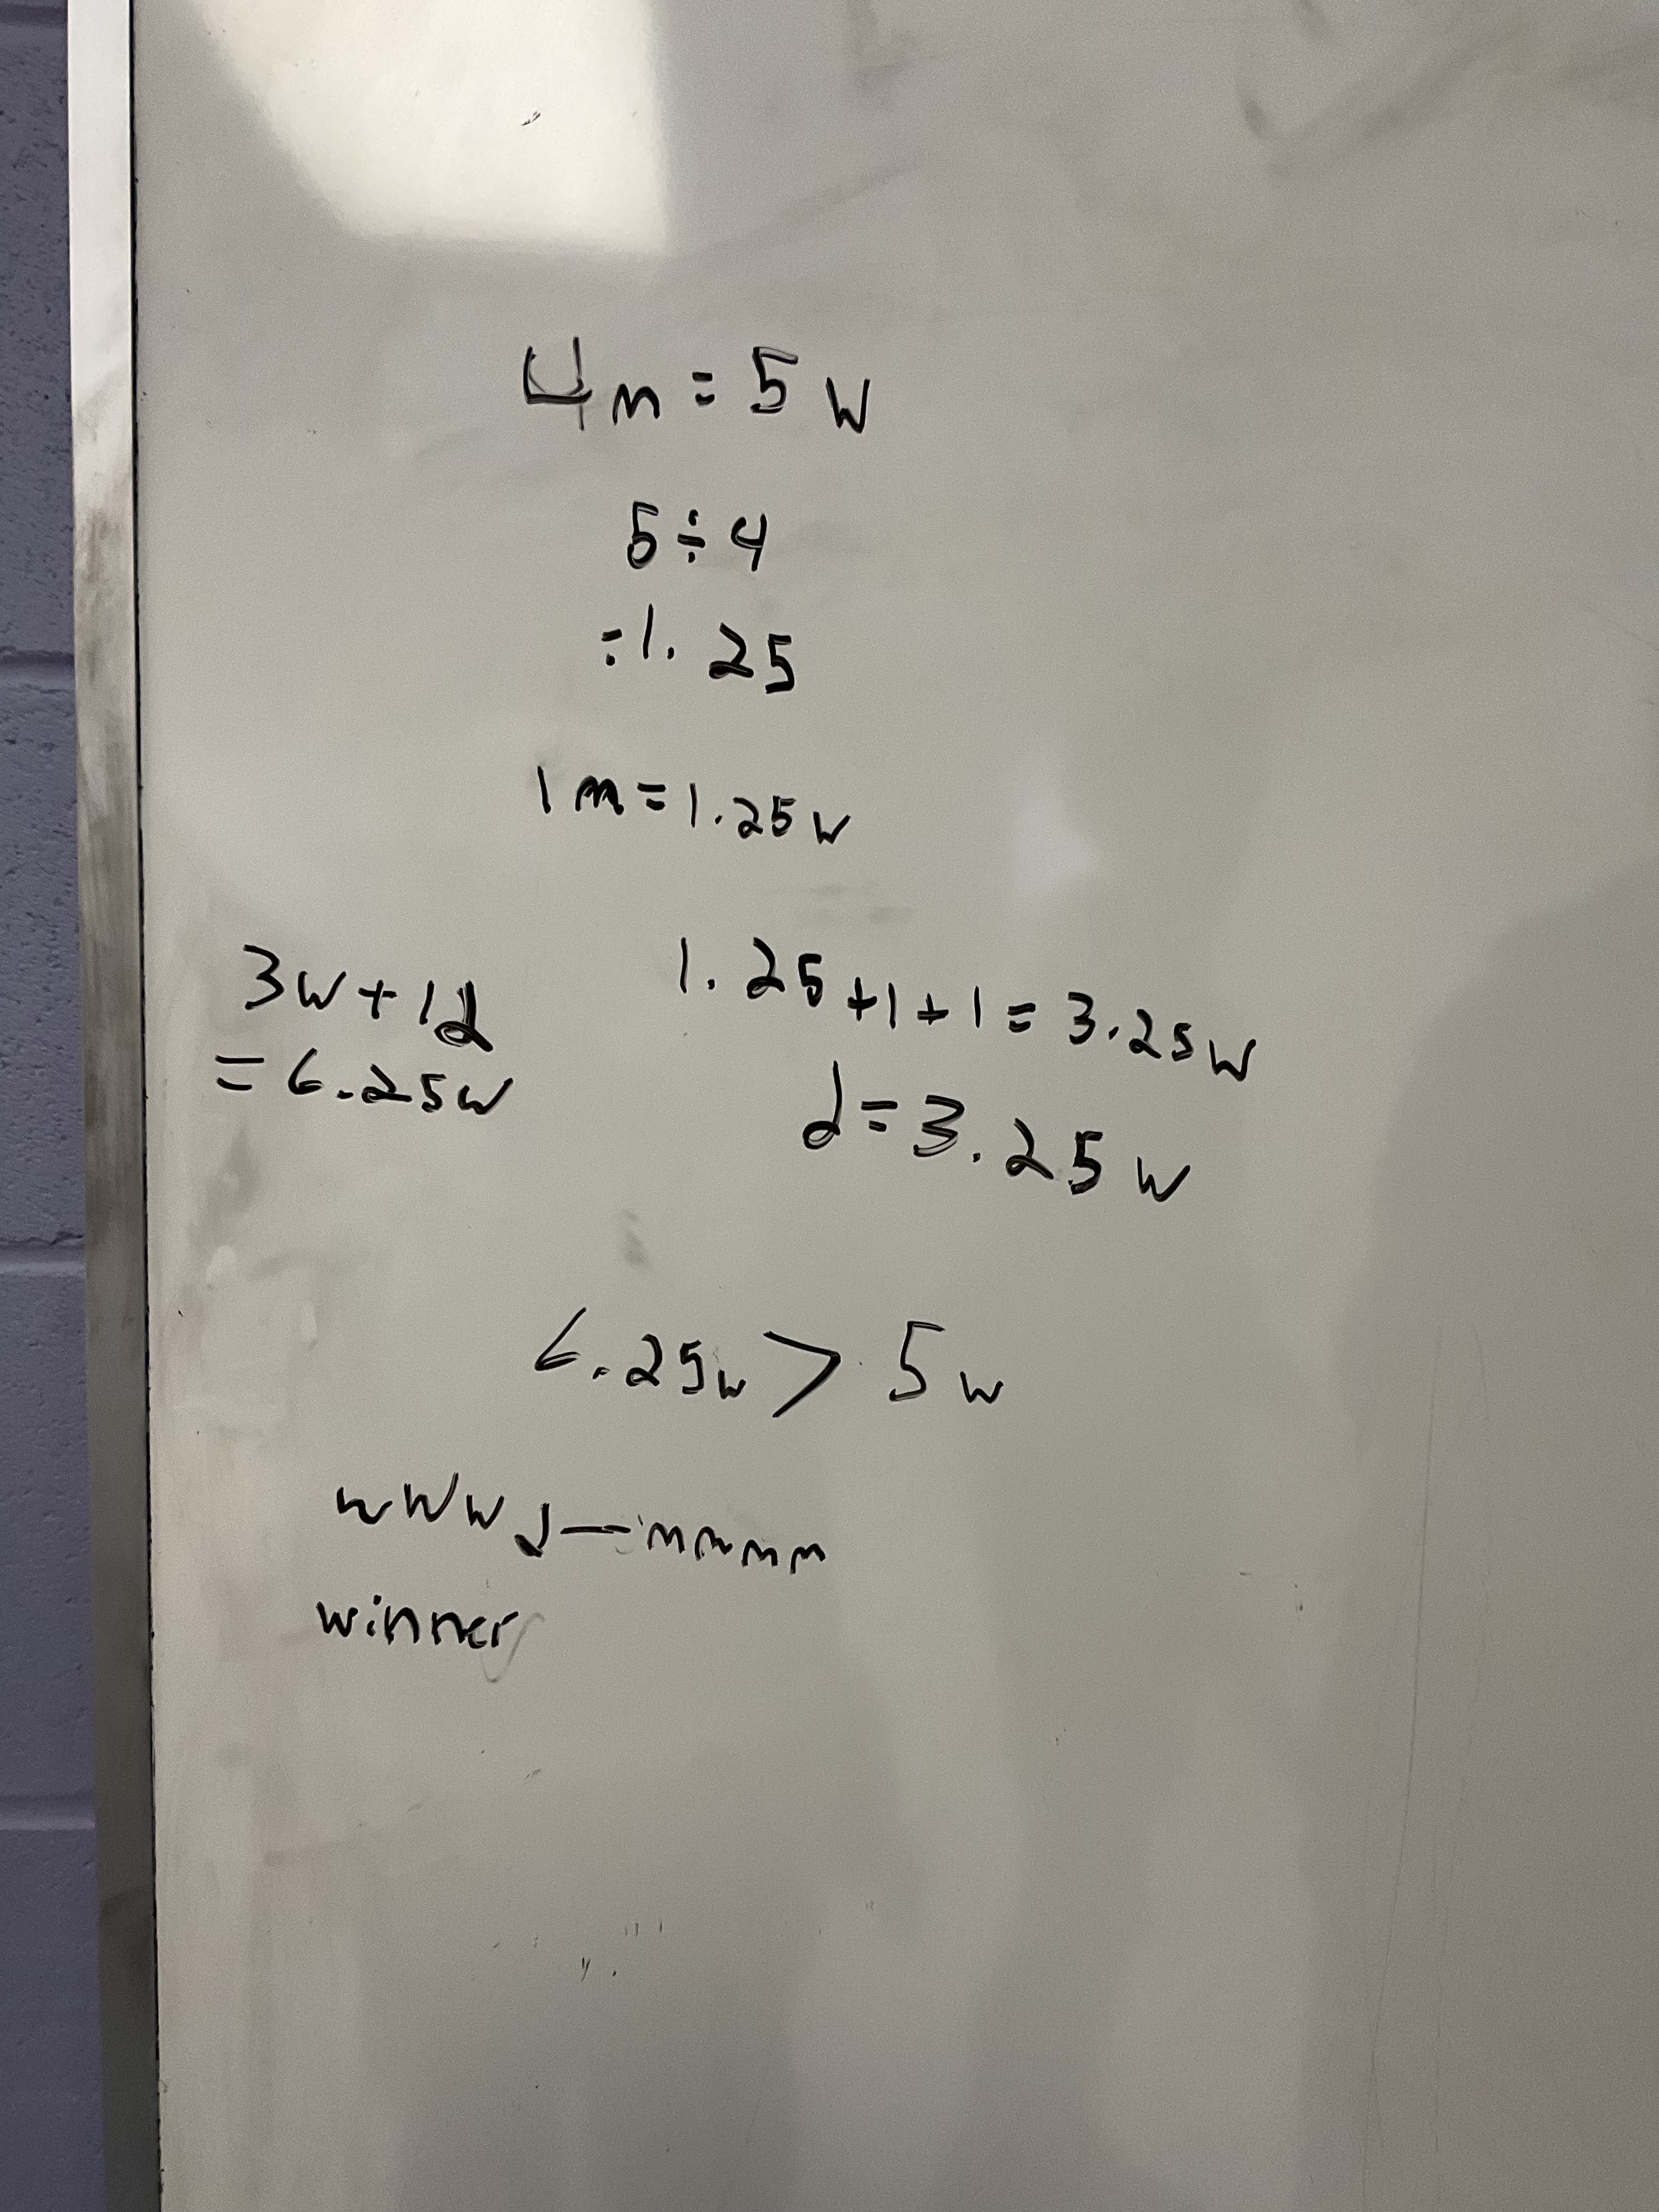 4m = 5w
5 ÷ 4
= 1.25
1m = 1.25w
3w + 1d
= 6.25w
1.25 + 1 + 1 = 3.25w
d = 3.25w
6.25w > 5w
wwwd — mmmm
winner